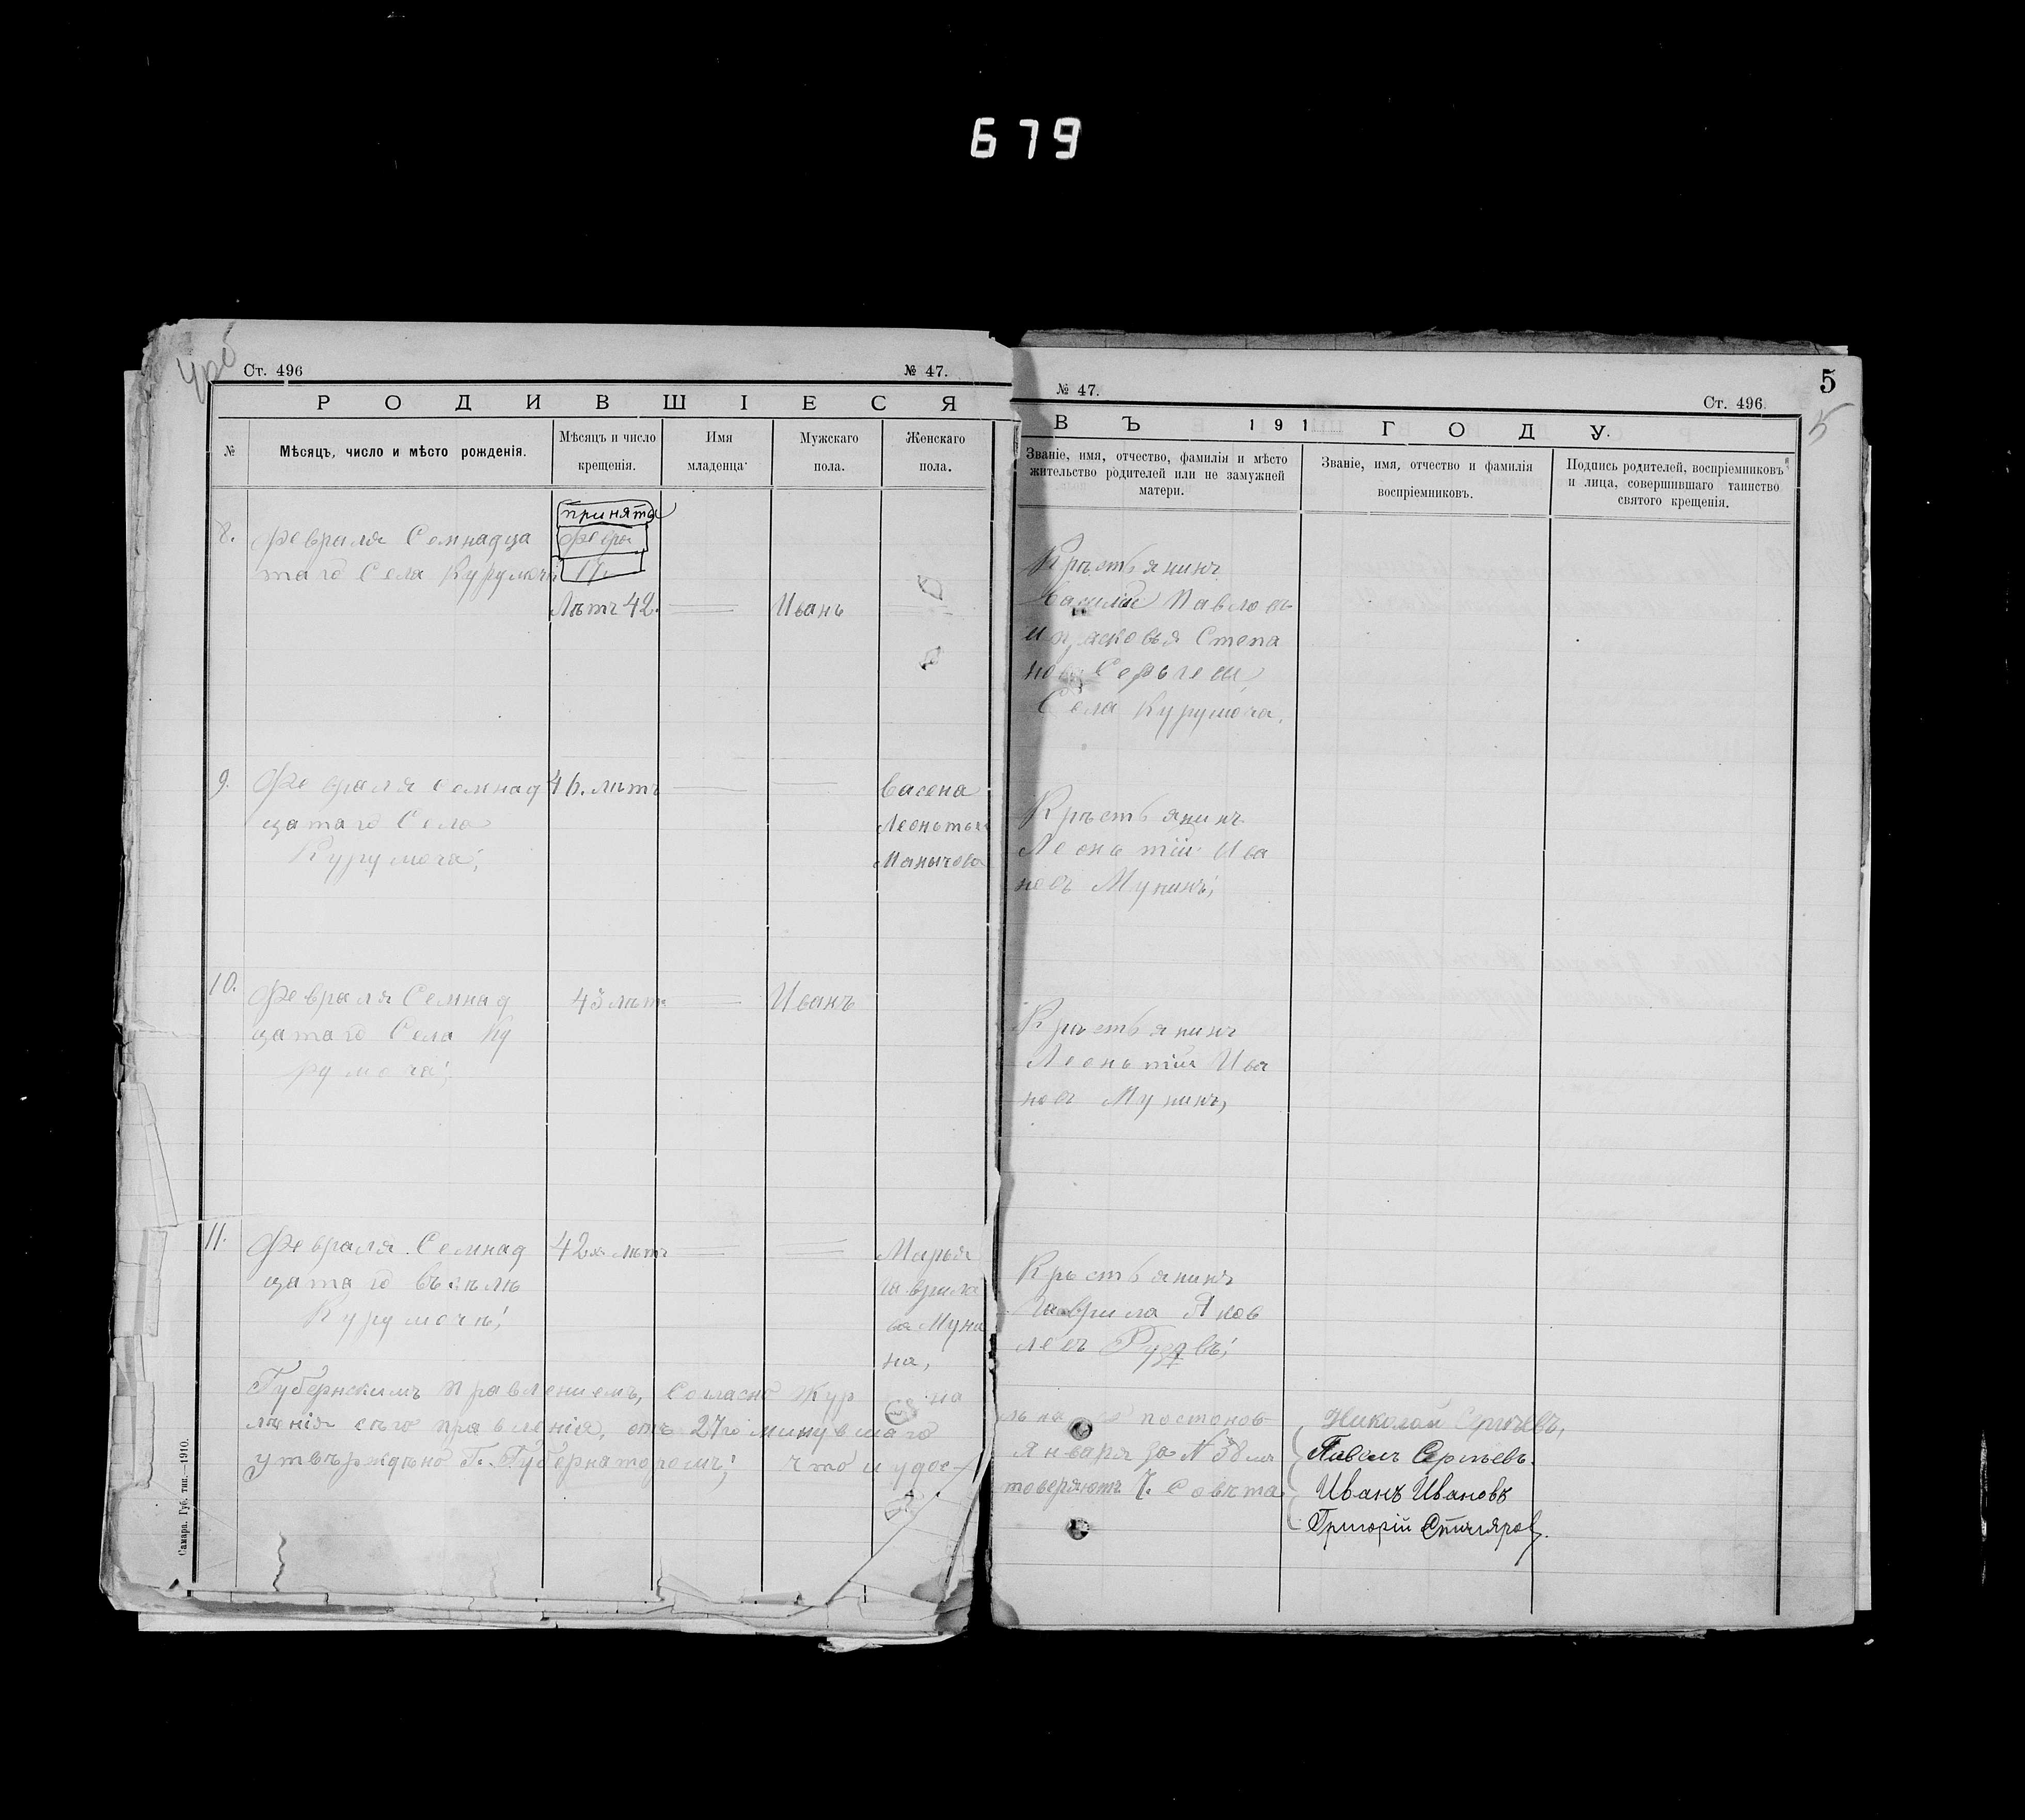 679
Ст. 496
№ 47.
РОДИВШІЕСЯ
№
Мѣсяцъ, число и мѣсто рожденія.
Мѣсяцъ и число
крещенія.
Имя
младенца
Мужскаго
пола.
Женскаго
пола.
принята
8.
Февраля Семнадца
таго Села Курумочи
17.
Лѣтъ 42.
Иванъ
9.
Февраля семнад
цатаго Села
Курумоча;
46. лѣтъ
Васена
Леонтья
10.
Февраля Семнад
цатаго Села Ку
румоча;
43 лѣт
Иванъ
11.
Февраля Семнад
цатаго въ селѣ
Курумочѣ;
42х лѣтъ
Марья
Гаврила
ва Муни
на,
Губернскимъ правлениемъ, согласно жур
лѣнія сего правленія, отъ 27го минувшаго
утвърждѣно Г. Губернаторомъ; что и удос-
Самара. Губ. тип.—1910.
№ 47.
Ст. 496.
5
5
ВЪ 191 ГОДУ.
Званіе, имя, отчество, фамилія и мѣсто
жительство родителей или не замужней
матери.
Званіе, имя, отчество и фамилія
воспріемниковъ.
Подпись родителей, воспріемниковъ
и лица, совершившаго таинство
святого крещенія.
Кръстьянинъ
Василий Павловъ
и прасковья Степа
нова
Села Курумоча.
Кръстьянинъ
Леоньтій Ива
новъ Мунинъ;
Кръстьянинъ
Леоньтій Ива
новъ Мунинъ,
Кръстьянинъ
Гаврила Яков
левъ
постонов-
Января за № 38 мъ
товеряютъ Ч. Совѣта
Николай Сергѣевъ,
Павелъ Сергѣевъ.
Иванъ Ивановъ
Григорій Столяров.